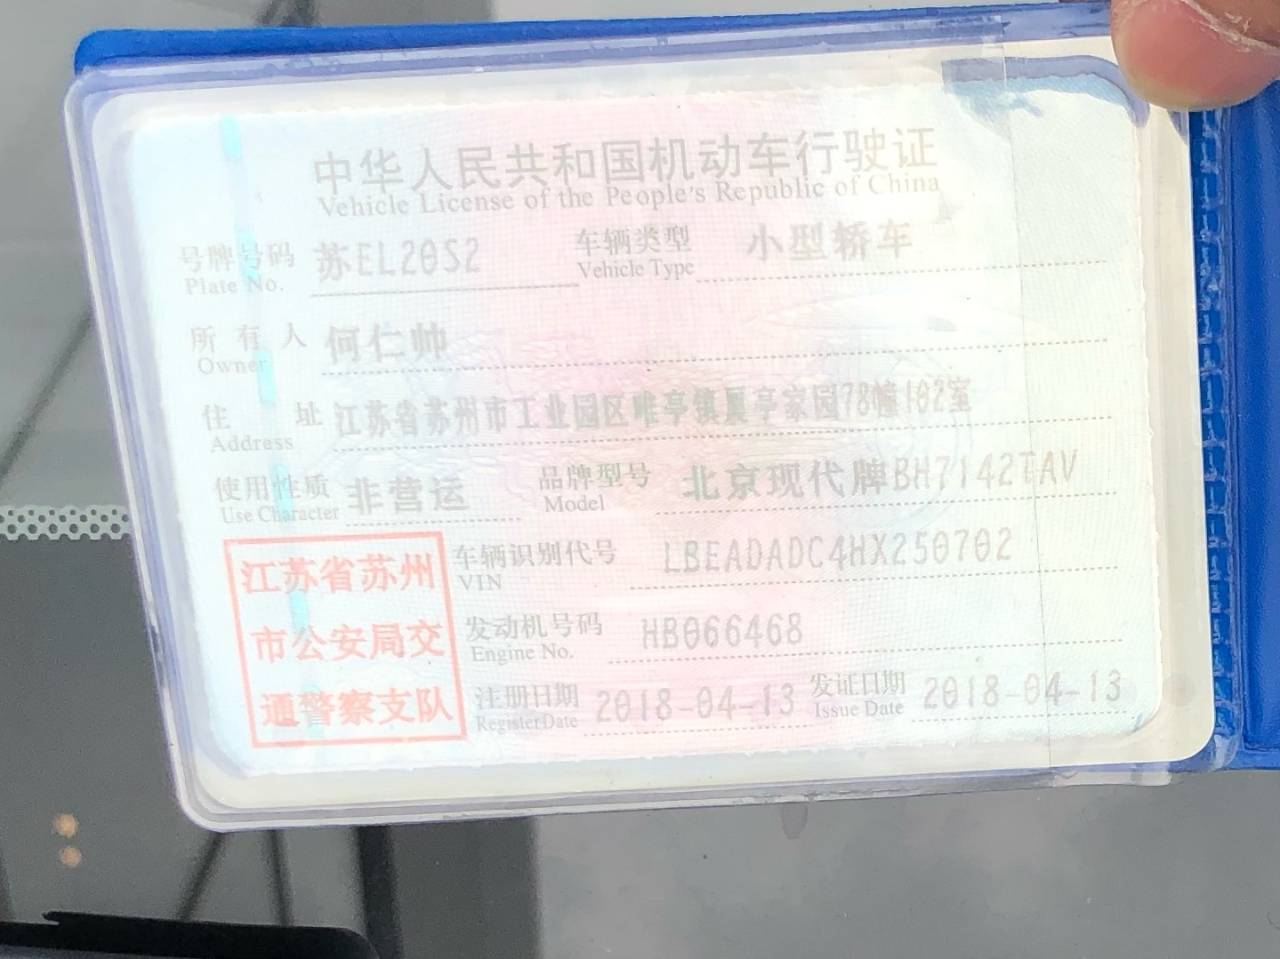 中华人民共和国机动车行驶证
Vehicle License of the People's Republic of China
号牌号码 苏EL20S2 车辆类型 小型轿车
Plate No. Vehicle Type
所有人 何仁帅
Owner
住址 江苏省苏州市工业园区唯亭镇夏亭家园78幢102室
Address
使用性质 非营运 品牌型号 北京现代牌BH7142TAV
Use Character Model
车辆识别代号 LBEADADC4HX250702
VIN
发动机号码 HB066468
Engine No.
注册日期 2018-04-13 发证日期 2018-04-13
Register Date Issue Date
江苏省苏州
市公安局交
通警察支队